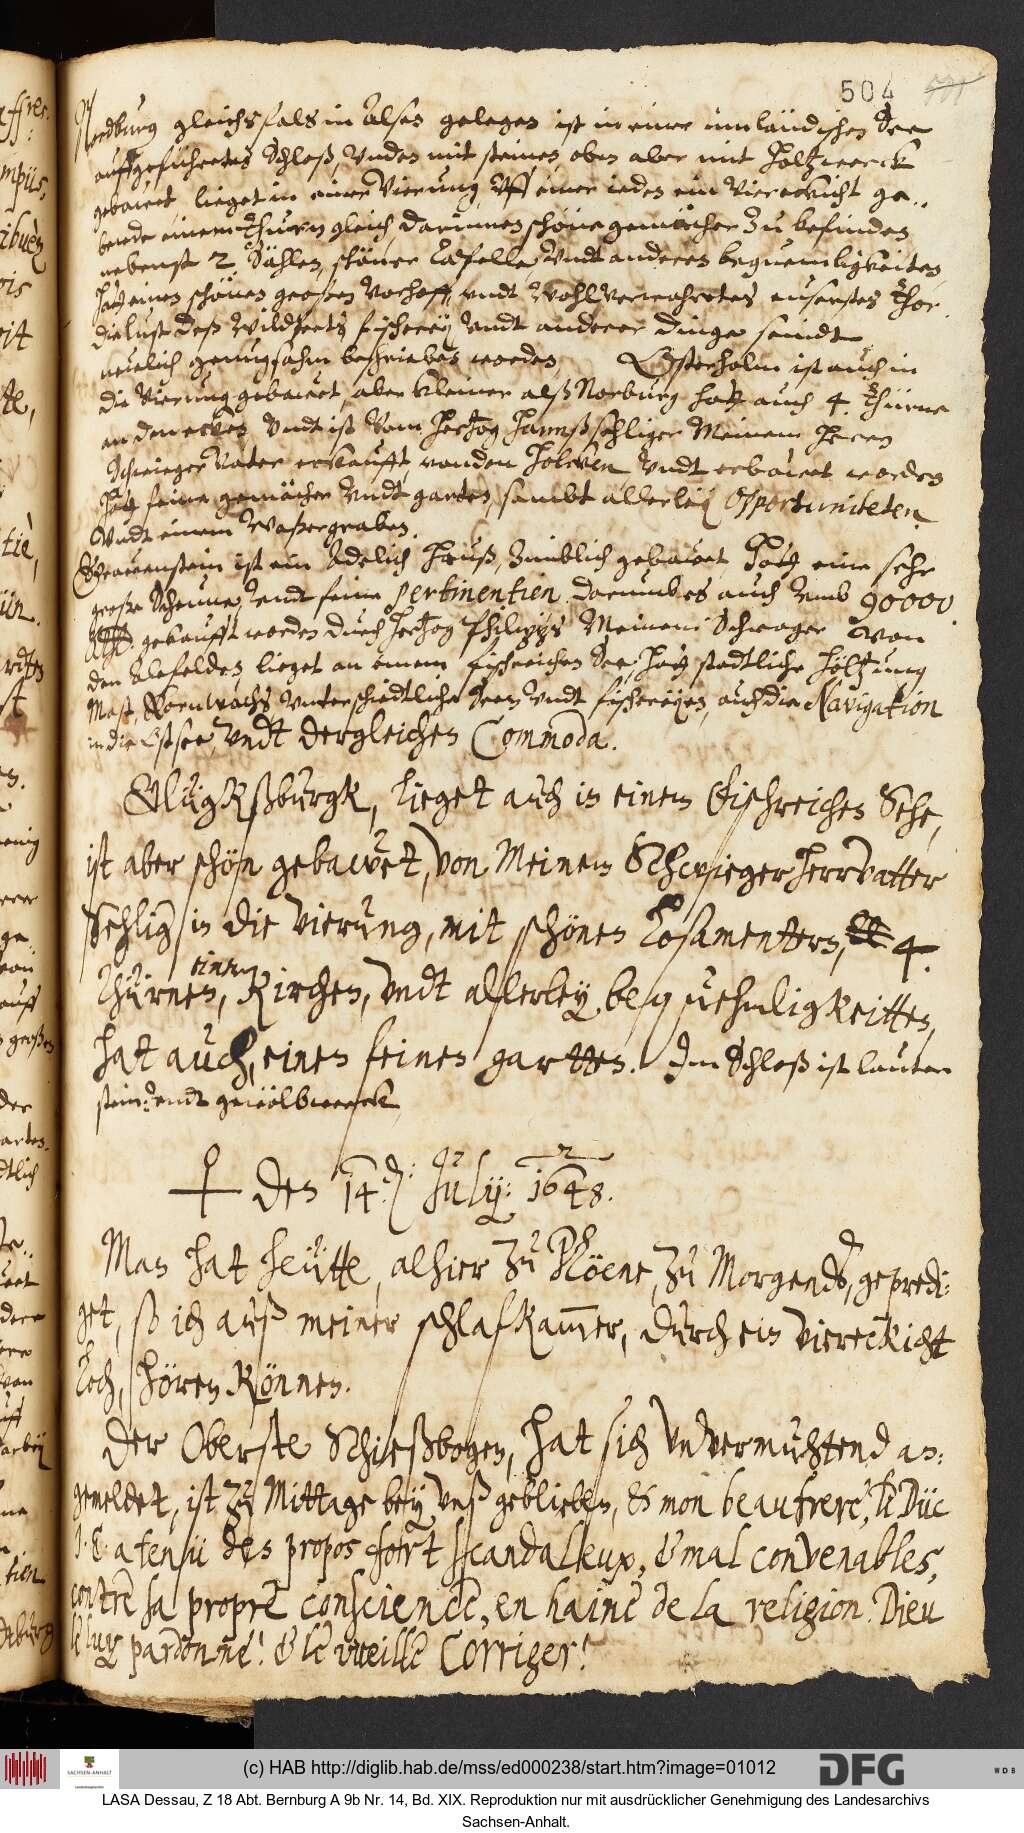 504
Nordburg gleichsfals in Alsen gelegen ist in einer inländischen See
auffgeführetes Schloß, Unden mit steinen oben aber mit Holtzwerck
gebawet lieget in einer Vierung, Uff einer ieden ein Viereckicht ge-
beude einem Thurn gleich, darinnen schöne gemächer Zu befinden
nebenst 2 Sählen, schöner Capelle, Undt anderen bequemligkeiten
Hatt einen schönen großen Vorhoff, undt Wohl verwahretes euserstes Thor.
die lust deß Wildperts fischerey Undt anderer dinge seindt
neulich genugsahm beschrieben worden Osterholm ist auch in
die Vierung gebawet, aber kleiner alß Norburg hatt auch 4. Thürne
an den ecken, Undt ist Vom Hertzog Hannß sehliger Meinem Herren
Schwieger Vater erkaufft von den Holcken Undt erbawet worden
Hatt feine gemächer Undt garten, sambt allerley Opportuniteten
Undt einem Waßergraben.
Grawenstein ist ein Adelich Hauß, Zimblich gebawet Hatt eine sehr
große Scheune, Undt feine pertinentien. Darumb es auch Umb 90000
gekaufft worden durch Hertzog Philipps Meinem Schwager Von
den Alefelden lieget an einem fischreichen See, Hatt stadtliche Höltzung
Mast, Kornwachs Unterschiedtliche Seen Undt fischereyen, auch die Navigation
in die Ostsee, Undt dergleichen Commoda.
Glügksburgk, lieget auch in einem Fischreichen Sehe,
ist aber schön gebawet, von Meinem Schwieger Herrvatter
Sehlig in die Vierung, mit schönen Losamentern, 4.
Thürnen, einer Kirchen, Undt allerley bequehmligkeitten,
hat auch, einen feinen gartten. Im Schloß ist lauter
stein: Undt gewölbwerck
den 14. July: 1648.
Man hat heütte, alhier zu Plöene, zu Morgends, gepredi-
get, so ich auß meiner schlafkammer, durch ein viereckicht
Loch, hören können.
Der Oberste Schießbogen, hat sich unvermuhtend an-
gemeldet, ist zu Mittage bey unß geblieben, & mon beaufrere, le Düc
J. E. a tenü des propos fort scandaleux, & mal convenables,
contre sa propre conscience, en haine de la religion. Dieu
le luy pardonne! & le vueille Corriger!
(c) HAB http://diglib.hab.de/mss/ed000238/start.htm?image=01012
SACHSEN-ANHALT
DFG
WDB
LASA Dessau, Z 18 Abt. Bernburg A 9b Nr. 14, Bd. XIX. Reproduktion nur mit ausdrücklicher Genehmigung des Landesarchivs
Sachsen-Anhalt.